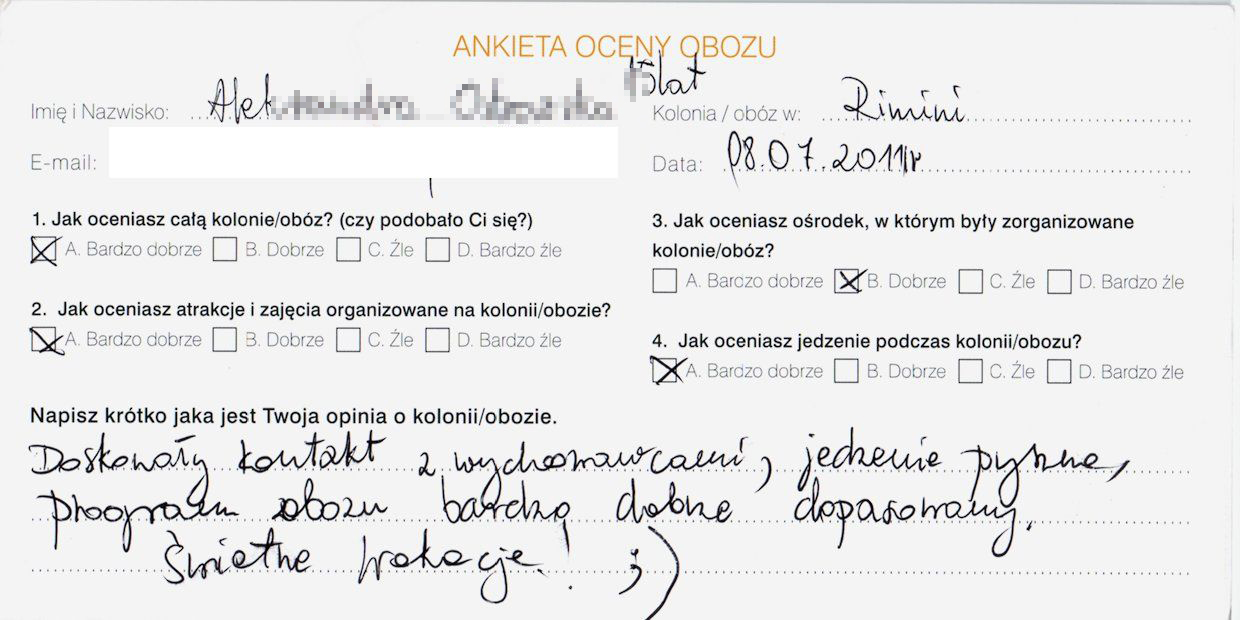 ANKIETA OCENY OBOZU
Imię i Nazwisko:
15lat
Kolonia / obóz w: Rimini
E-mail:
Data: 08.07.2011r
1. Jak oceniasz całą kolonie/obóz? (czy podobało Ci się?)
A. Bardzo dobrze B. Dobrze C. Źle D. Bardzo źle
2. Jak oceniasz atrakcje i zajęcia organizowane na kolonii/obozie?
A. Bardzo dobrze B. Dobrze C. Źle D. Bardzo źle
3. Jak oceniasz ośrodek, w którym były zorganizowane
kolonie/obóz?
A. Bardzo dobrze B. Dobrze C. Źle D. Bardzo źle
4. Jak oceniasz jedzenie podczas kolonii/obozu?
A. Bardzo dobrze B. Dobrze C. Źle D. Bardzo źle
Napisz krótko jaka jest Twoja opinia o kolonii/obozie.
Doskonały kontakt z wychowawcami, jedzenie pyszne,
program obozu bardzo dobrze dopasowany.
Świetne wakacje! ;)